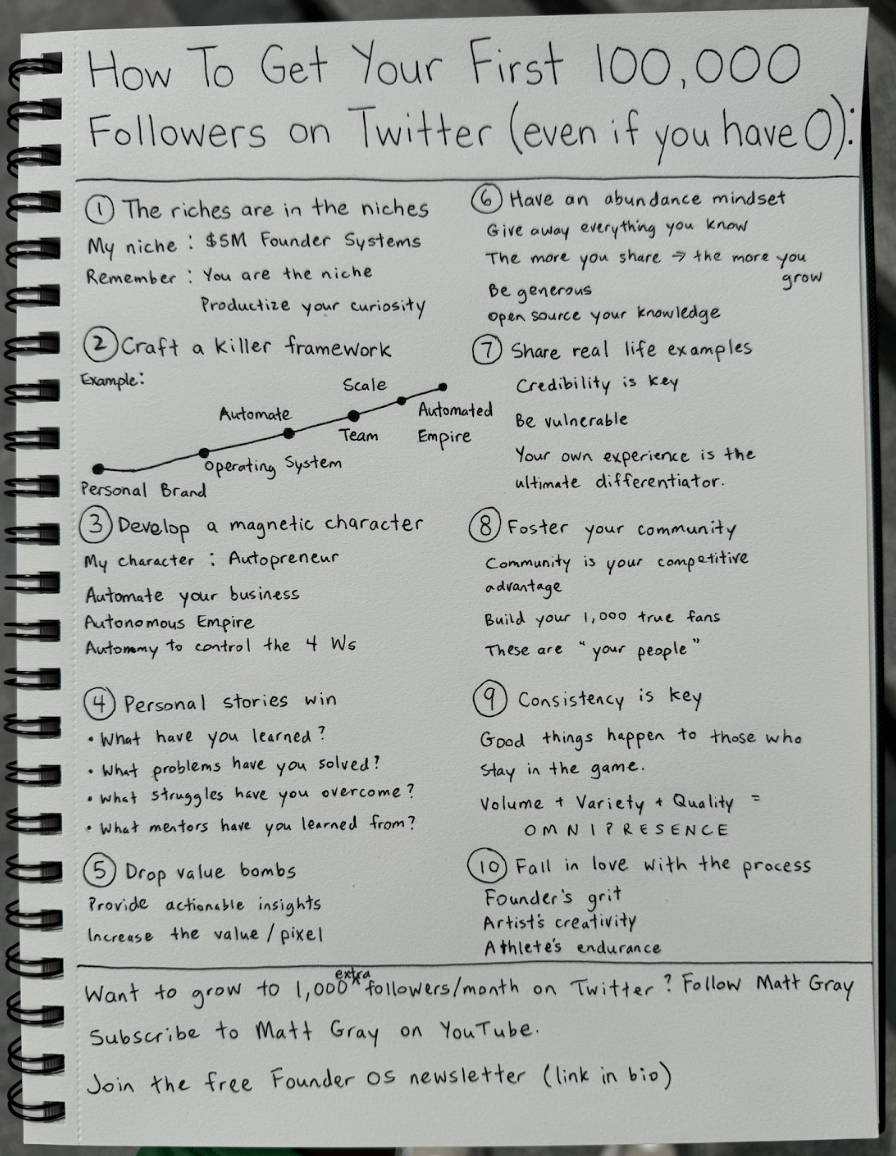 How To Get Your First 100,000
Followers on Twitter (even if you have 0):
① The riches are in the niches
My niche : $5M Founder Systems
Remember : You are the niche
Productize your curiosity
② Craft a killer framework
Example:
Scale
Automate
Automated
Empire
Team
Operating System
Personal Brand
③ Develop a magnetic character
My character : Autopreneur
Automate your business
Autonomous Empire
Autonomy to control the 4 Ws
④ Personal stories win
• What have you learned?
• What problems have you solved?
• What struggles have you overcome?
• What mentors have you learned from?
⑤ Drop value bombs
Provide actionable insights
Increase the value / pixel
⑥ Have an abundance mindset
Give away everything you know
The more you share → the more you
grow
Be generous
Open source your knowledge
⑦ Share real life examples
Credibility is key
Be vulnerable
Your own experience is the
ultimate differentiator.
⑧ Foster your community
Community is your competitive
advantage
Build your 1,000 true fans
These are "your people"
⑨ Consistency is key
Good things happen to those who
stay in the game.
Volume + Variety + Quality =
OMNIPRESENCE
⑩ Fall in love with the process
Founder's grit
Artist's creativity
Athlete's endurance
Want to grow to 1,000 extra followers/month on Twitter? Follow Matt Gray
Subscribe to Matt Gray on YouTube.
Join the free Founder OS newsletter (link in bio)